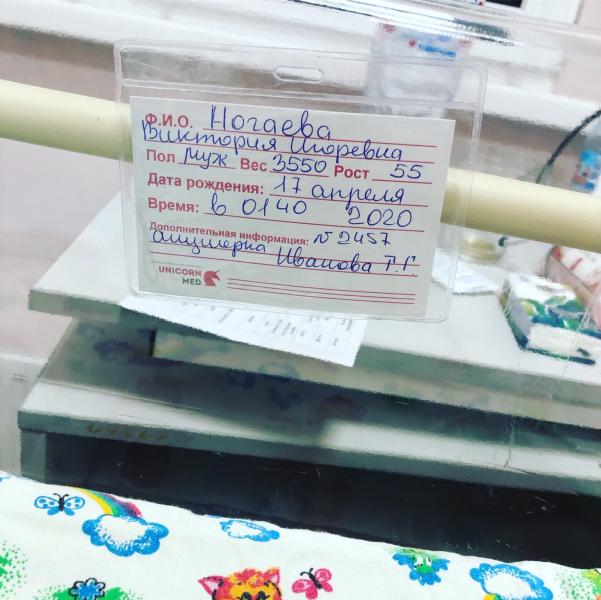 Ф.И.О. Ногаева
Виктория Игоревна
Пол муж Вес 3550 Рост 55
Дата рождения: 17 апреля
Время: в 01 40 2020
Дополнительная информация: N 2457
акушерка Иванова Т.Г.
UNICORN
MED